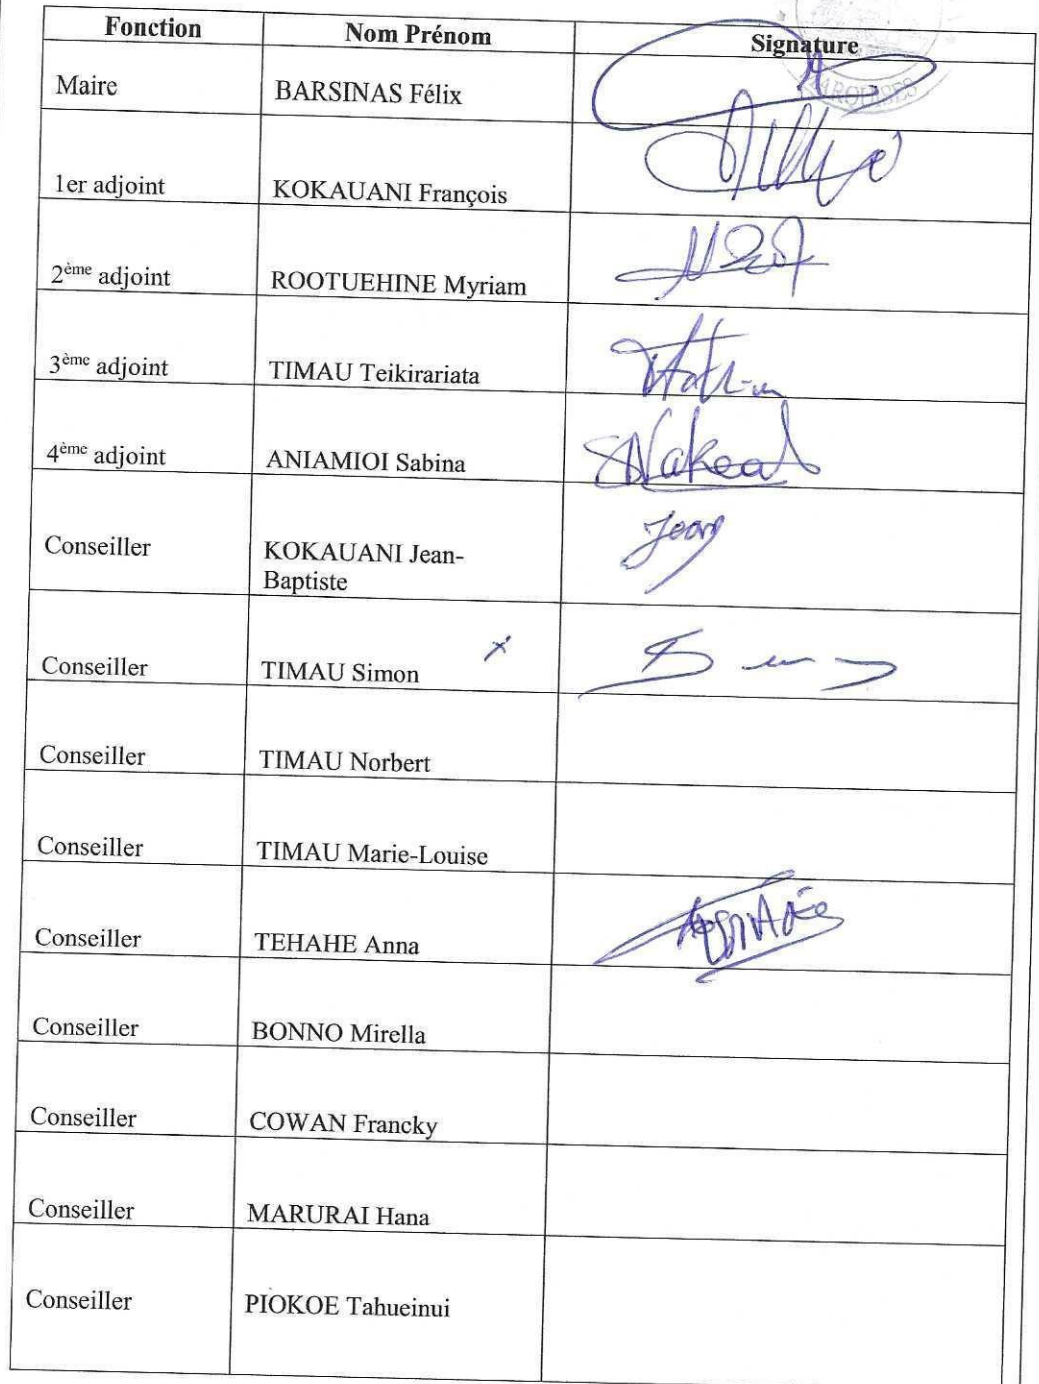 Fonction Nom Prénom Signature
MARQUISES
Maire BARSINAS Félix
1er adjoint KOKAUANI François
2ème adjoint ROOTUEHINE Myriam
3ème adjoint TIMAU Teikirariata
4ème adjoint ANIAMIOI Sabina
Conseiller KOKAUANI Jean-
Baptiste
Conseiller TIMAU Simon x
Conseiller TIMAU Norbert
Conseiller TIMAU Marie-Louise
Conseiller TEHAHE Anna
Conseiller BONNO Mirella
Conseiller COWAN Francky
Conseiller MARURAI Hana
Conseiller PIOKOE Tahueinui